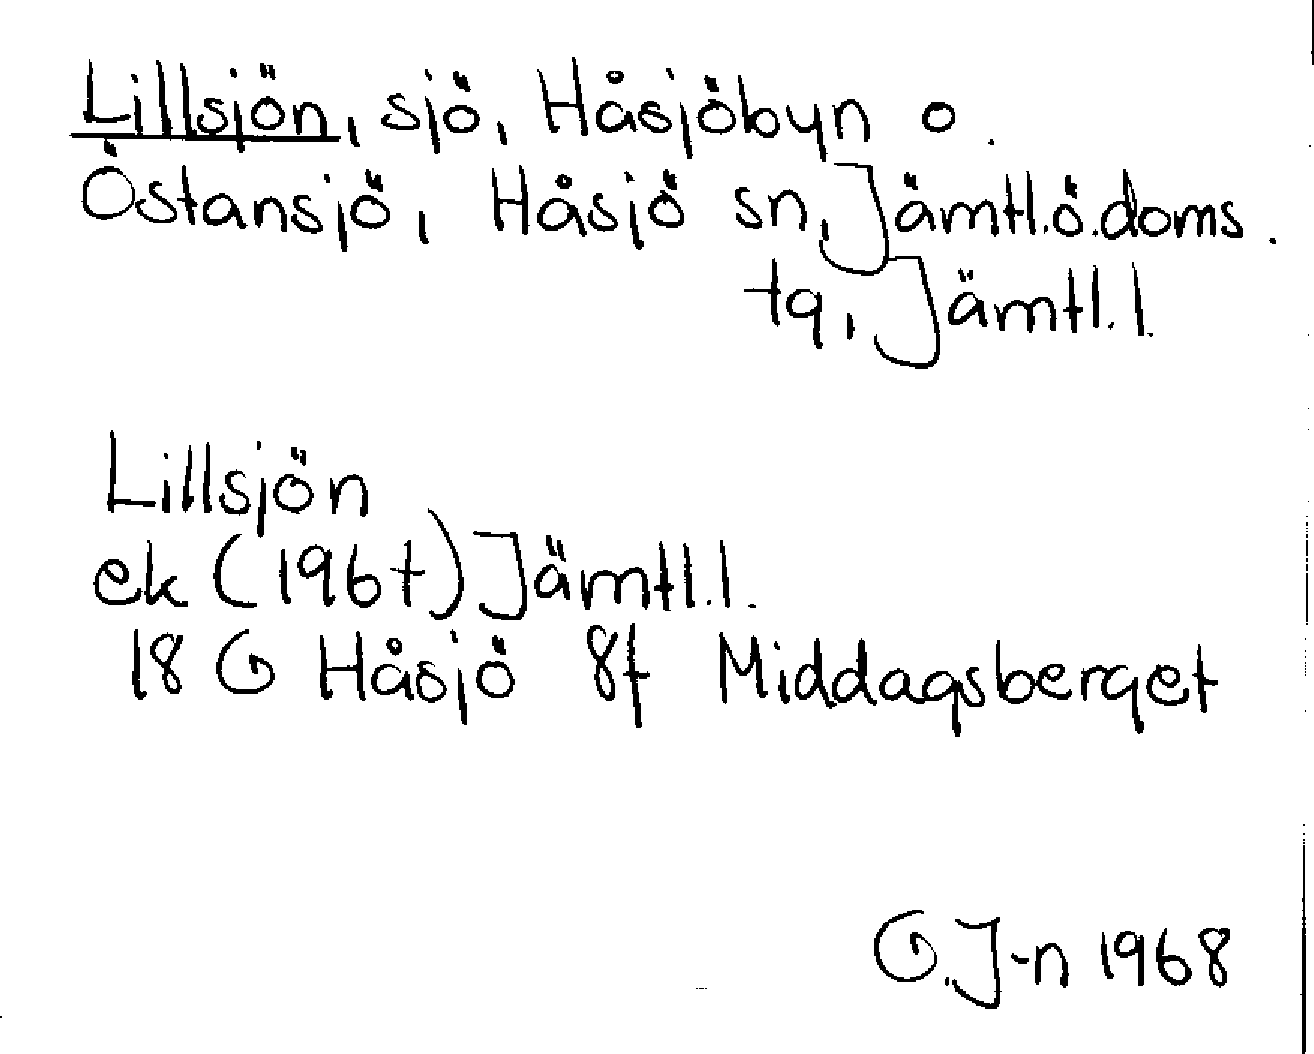 Lillsjön, sjö, Håsjöbyn o.
Östansjö, Håsjö sn, Jämtl.ö.doms.
tg, Jämtl.l.
Lillsjön
ek (1967) Jämtl.l.
18 G Håsjö 8f Middagsberget
G.J-n 1968